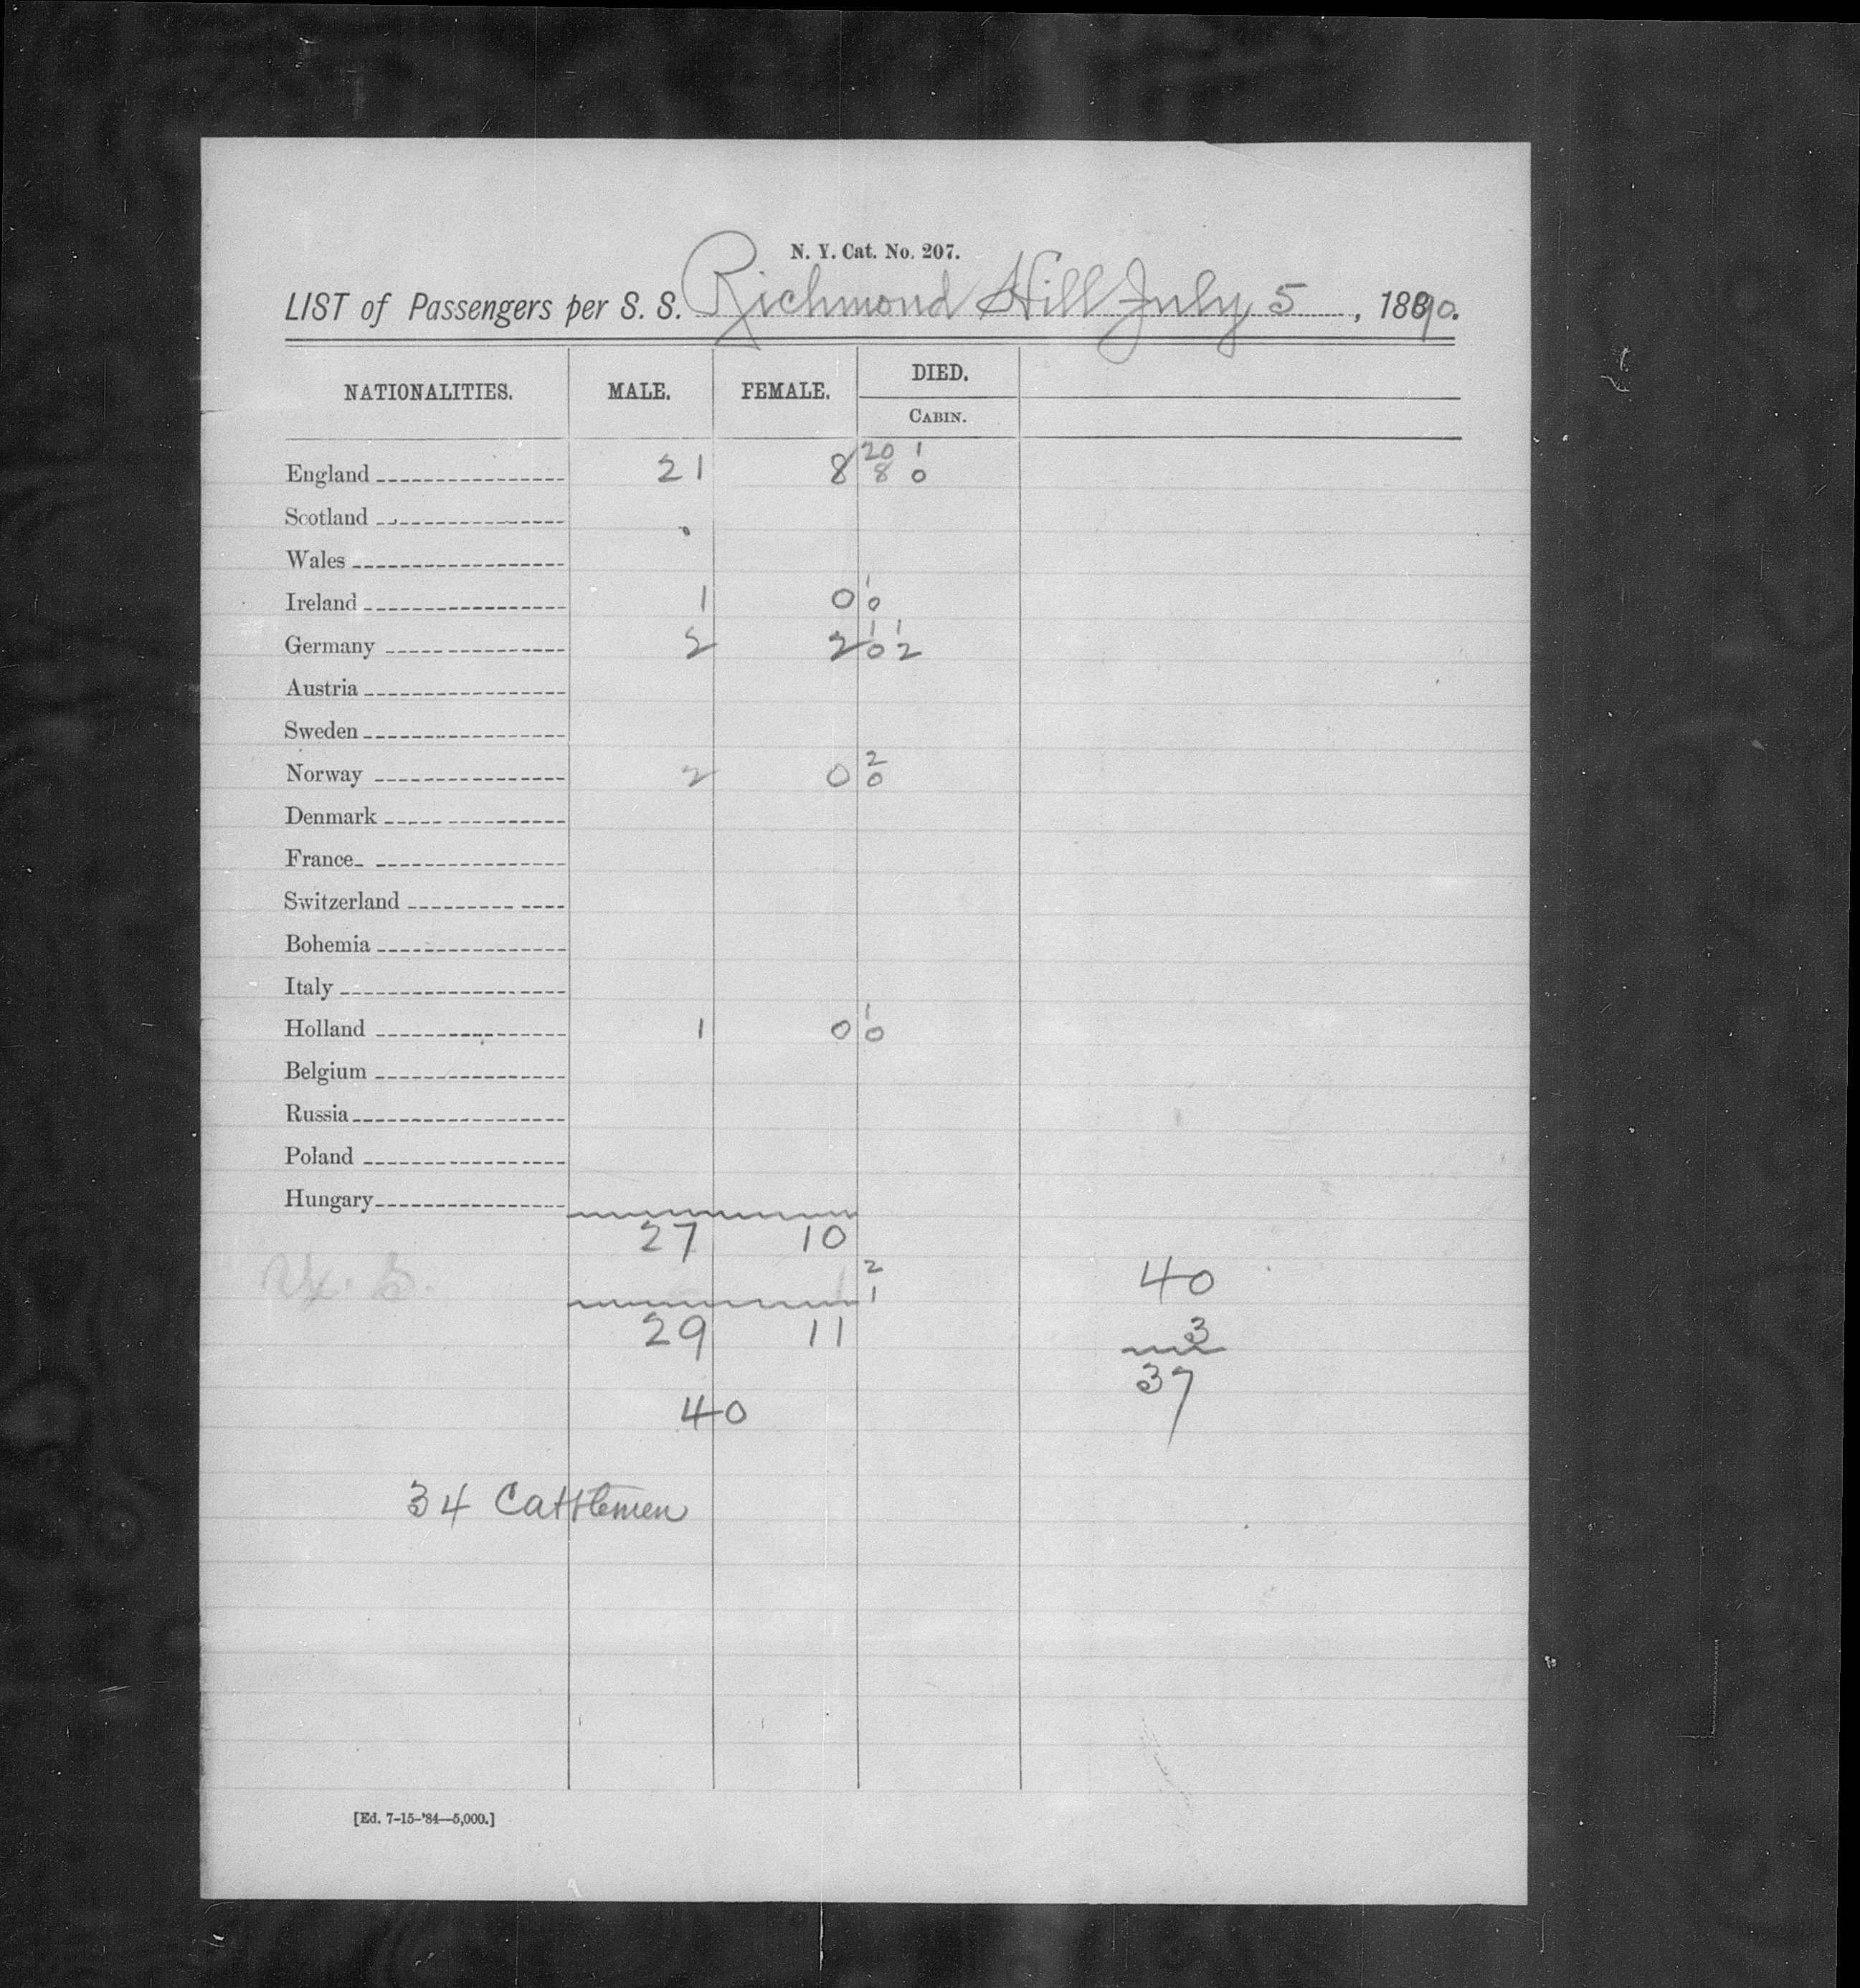 N. Y. Cat. No. 207.
LIST of Passengers per S. S. Richmond Hill July 5, 1890.
NATIONALITIES. MALE. FEMALE. DIED.
CABIN.
20 1
England 21 8 8 0
Scotland
Wales
1
Ireland 1 0 0
1 1
Germany 2 2 0 2
Austria
Sweden
2
Norway 2 0 0
Denmark
France
Switzerland
Bohemia
Italy
1
Holland 1 0 0
Belgium
Russia
Poland
Hungary
27 10
2
U. S. 1 1
29 11
40
40
3
37
34 Cattlemen
[Ed. 7-15-'84—5,000.]